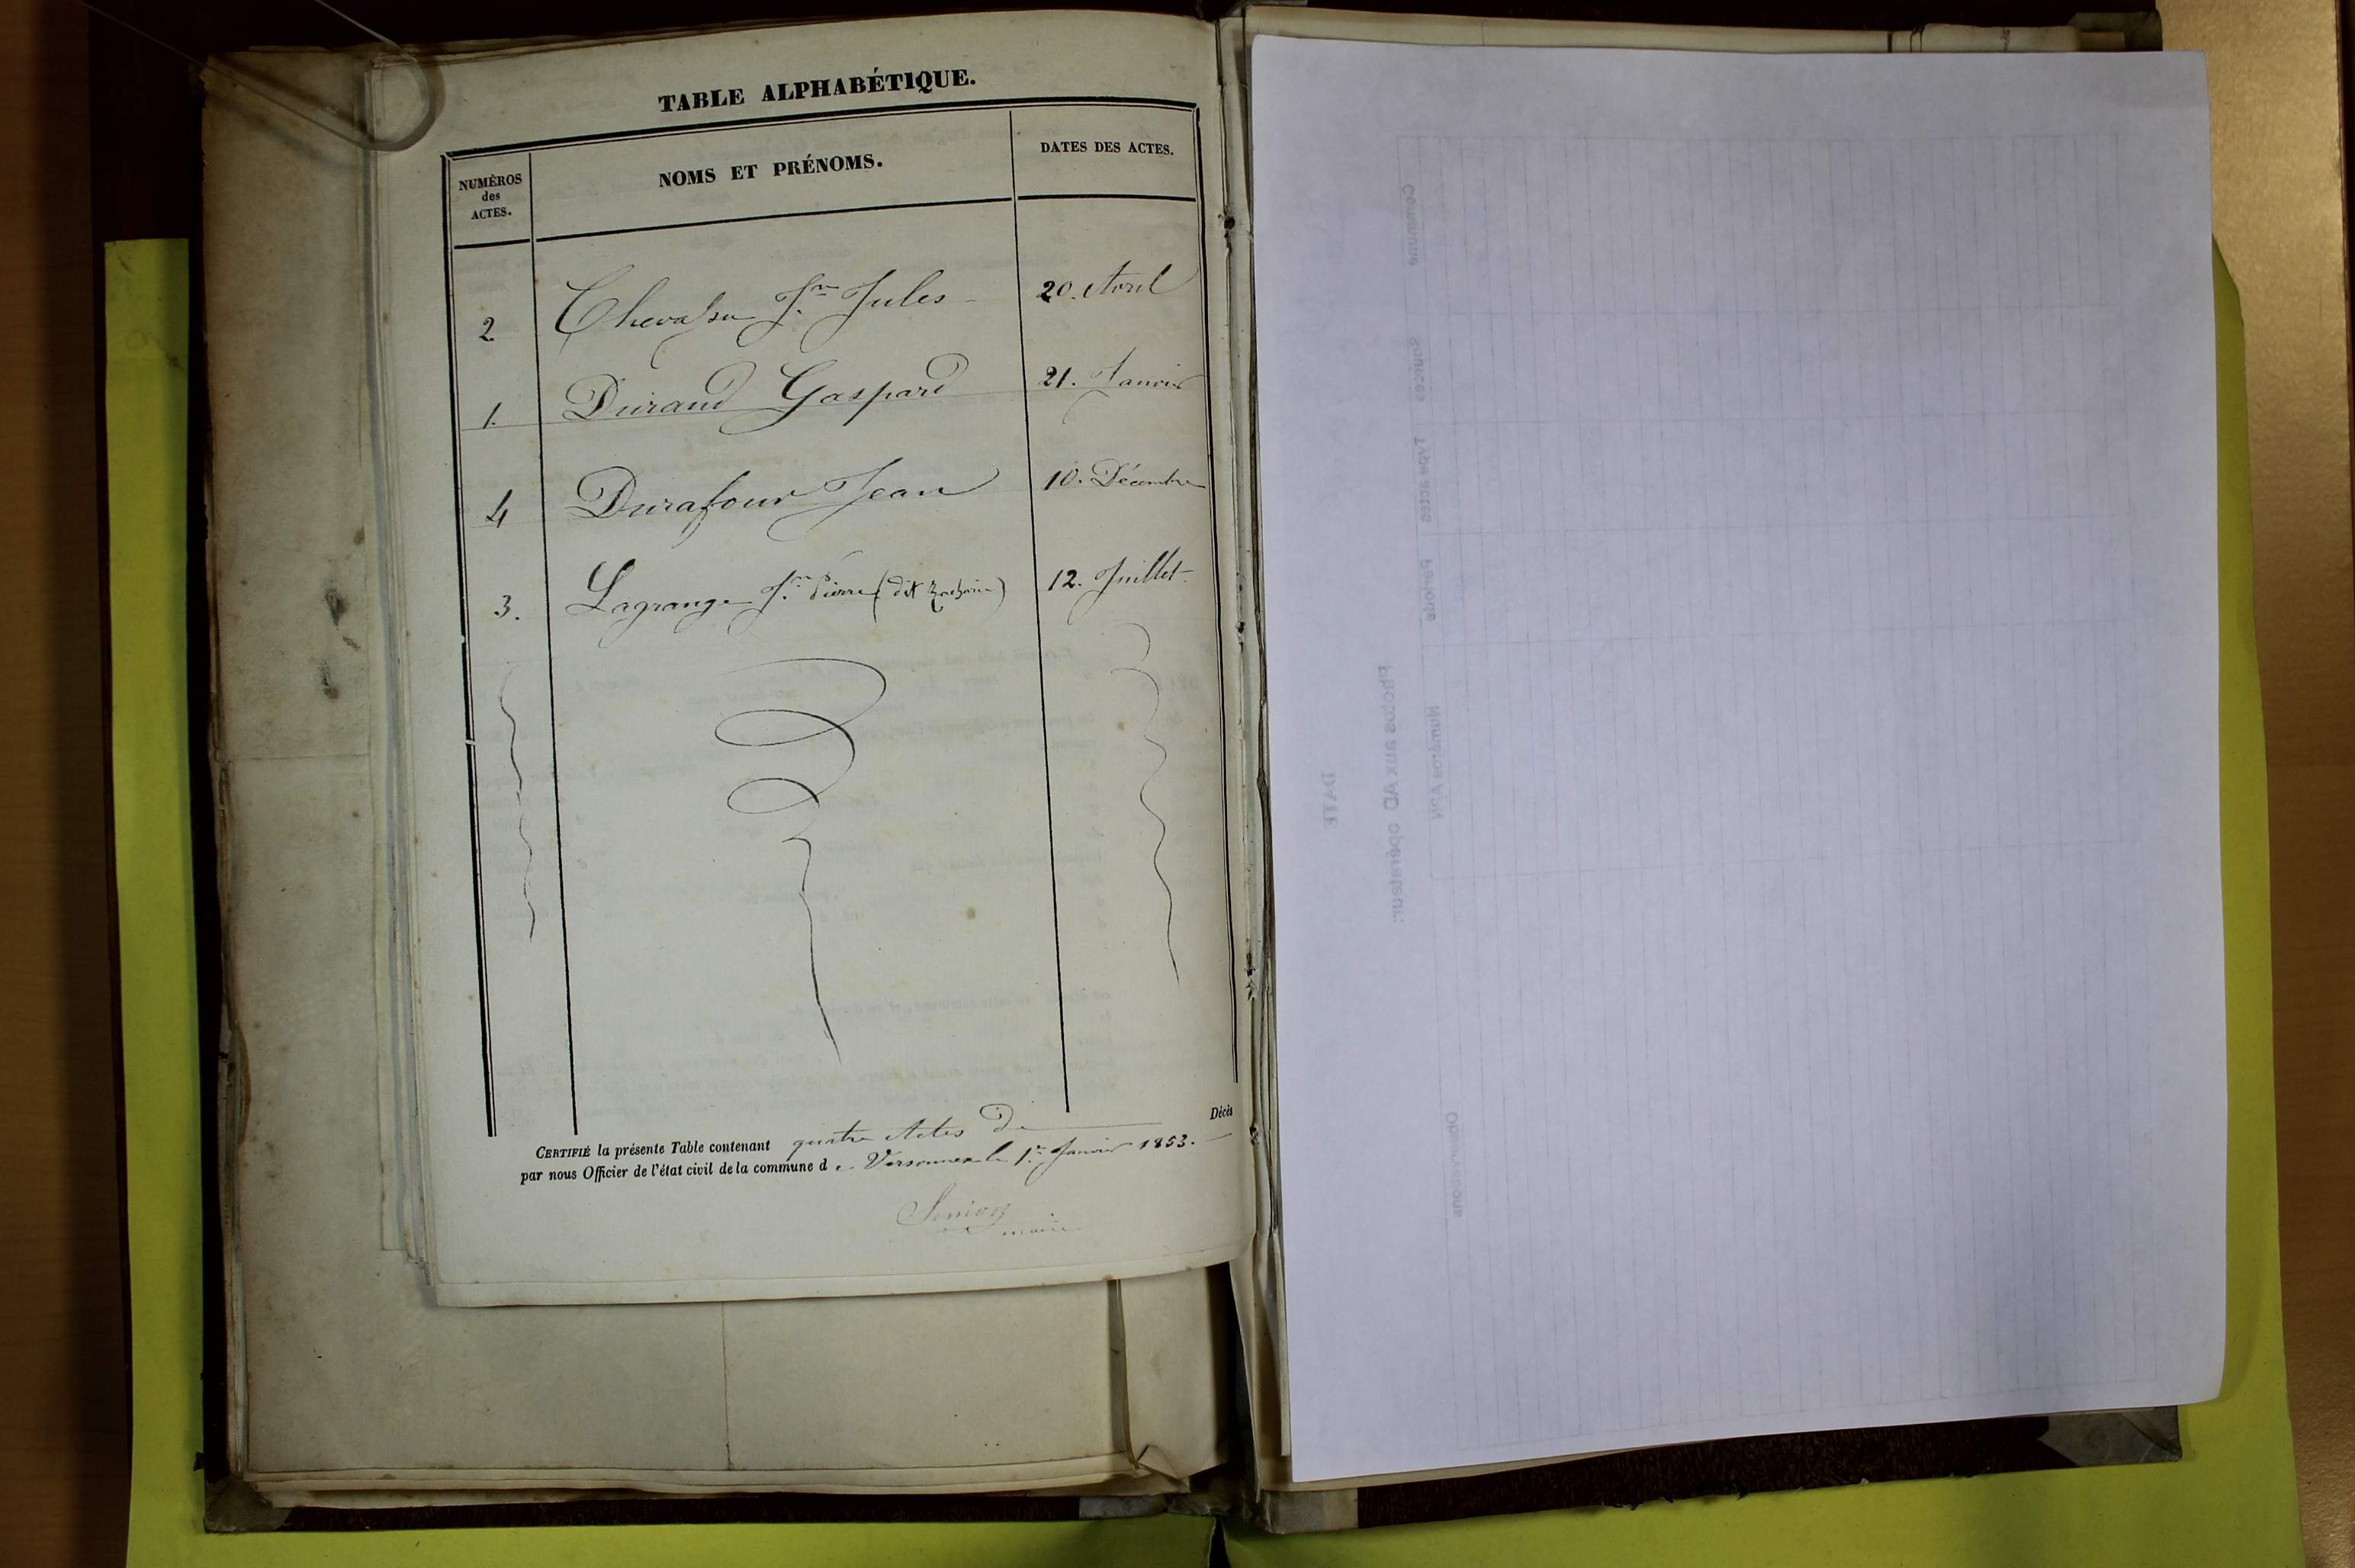 TABLE ALPHABÉTIQUE.
NUMÉROS
des
ACTES.
NOMS ET PRÉNOMS.
DATES DES ACTES.
2 Jn Jules 20. Avril
1. Durand Gaspard 21. Janvier
4 Durafour Jean 10. Décembre
3. Lagrange Jn Pierre (dit Zacharie) 12. Juillet
CERTIFIÉ la présente Table contenant quatre Actes de Décès
par nous Officier de l'état civil de la commune de Versonnex le 1er Janvier 1853.
maire
DATE
Photos aux AD opérateur:
Commune Sources Type actes Période Numéros APN Observations